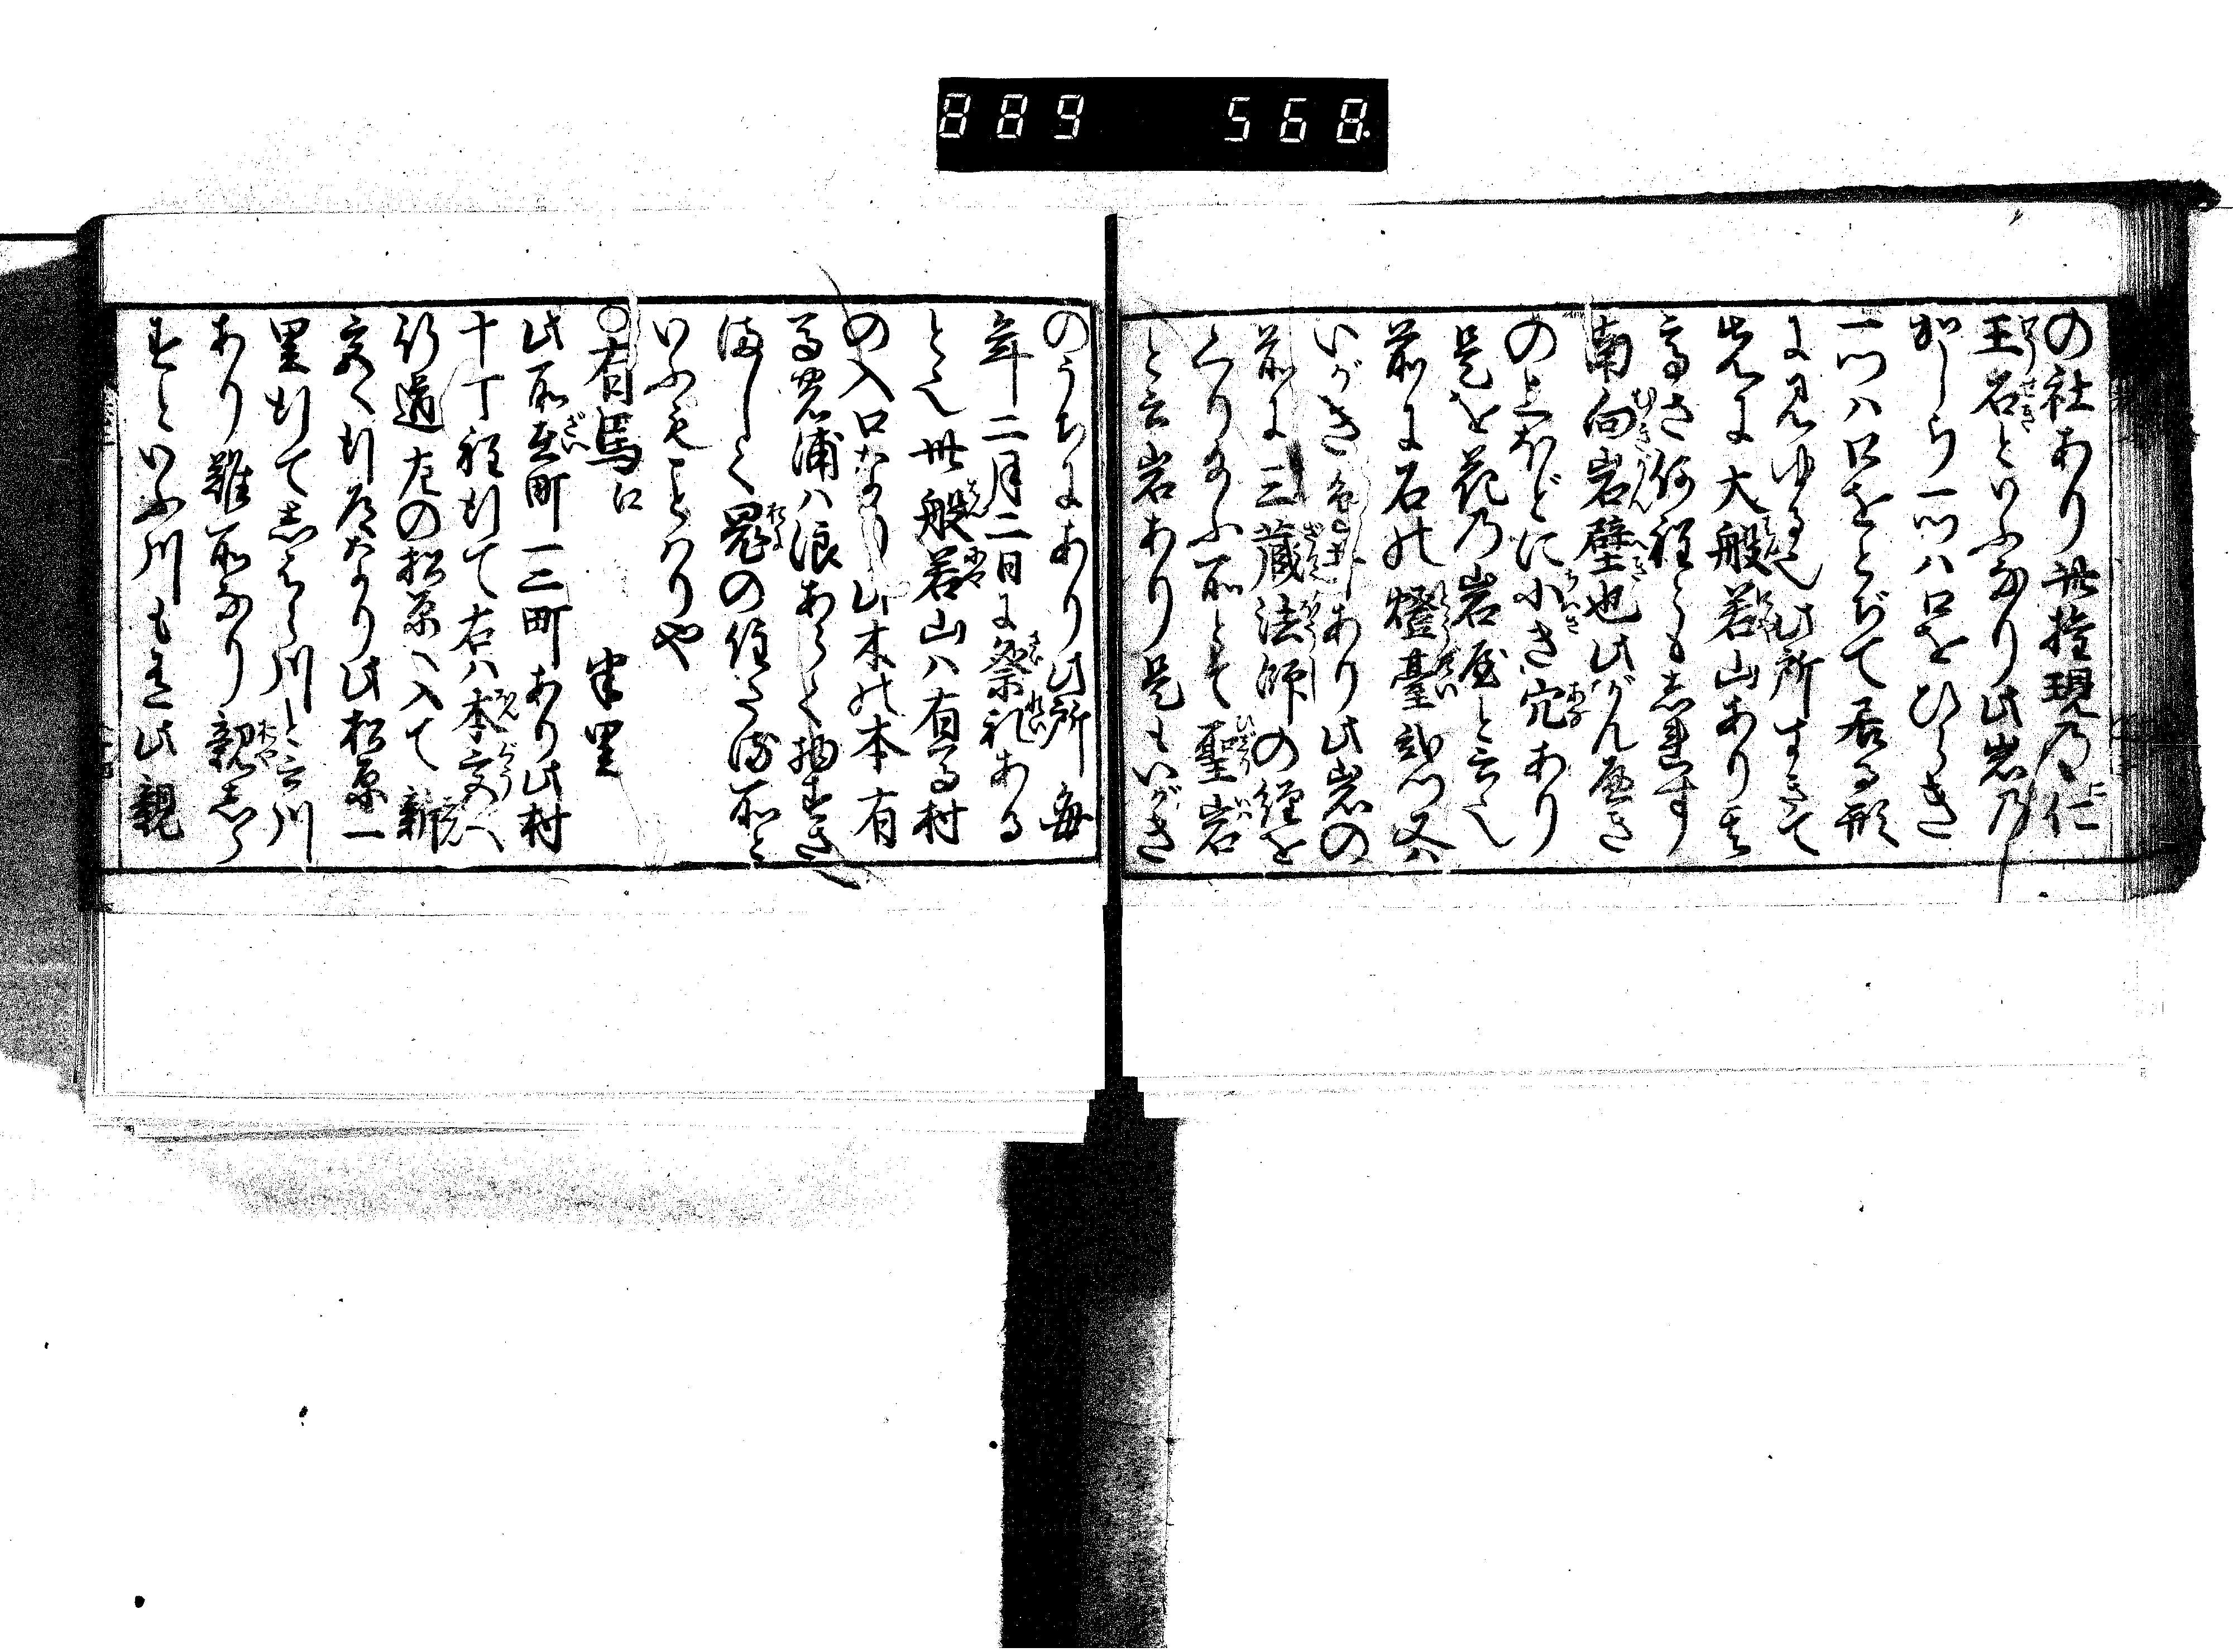 889 568
の社あり此権現乃仁
王石といふあり此岩乃
かしら一つハ口をひらき
一つハ口をとぢて居る形
に見ゆる也此所すきて
先に大般若山あり
高さ何程とも志れす
南向岩壁也此がん
の上ほどに小き穴あり
是を花乃岩屋と云也
前に石の燈臺 又ハ
いがき あり此岩の
前に三蔵法師の経を
くり給ふ所とて聖岩
と云岩あり是もいがき
のうちにあり此所毎
年二月二日に祭礼ある
と也此般若山ハ有馬村
の入口なり此木の本有
馬の浦ハ浪あらく物すさ
ましく鬼の住たる所と
いふもことハりや
○有馬口 半里
此所在町一二町あり此村
十丁程行て右ハ本宮へ
行道左の松原へ入て新
宮へ行道なり此松原一
里行て志はら川と云川
あり難所なり親しら
すといふ川も有此親